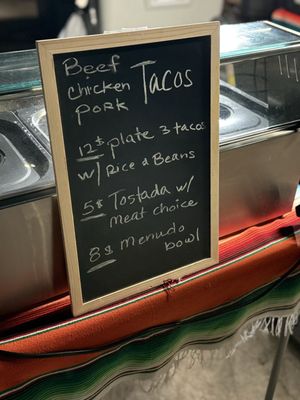 Beef
chicken Tacos
pork
12$ plate 3 tacos
w/ Rice & Beans
5$ Tostada w/
meat choice
8$ menudo
bowl